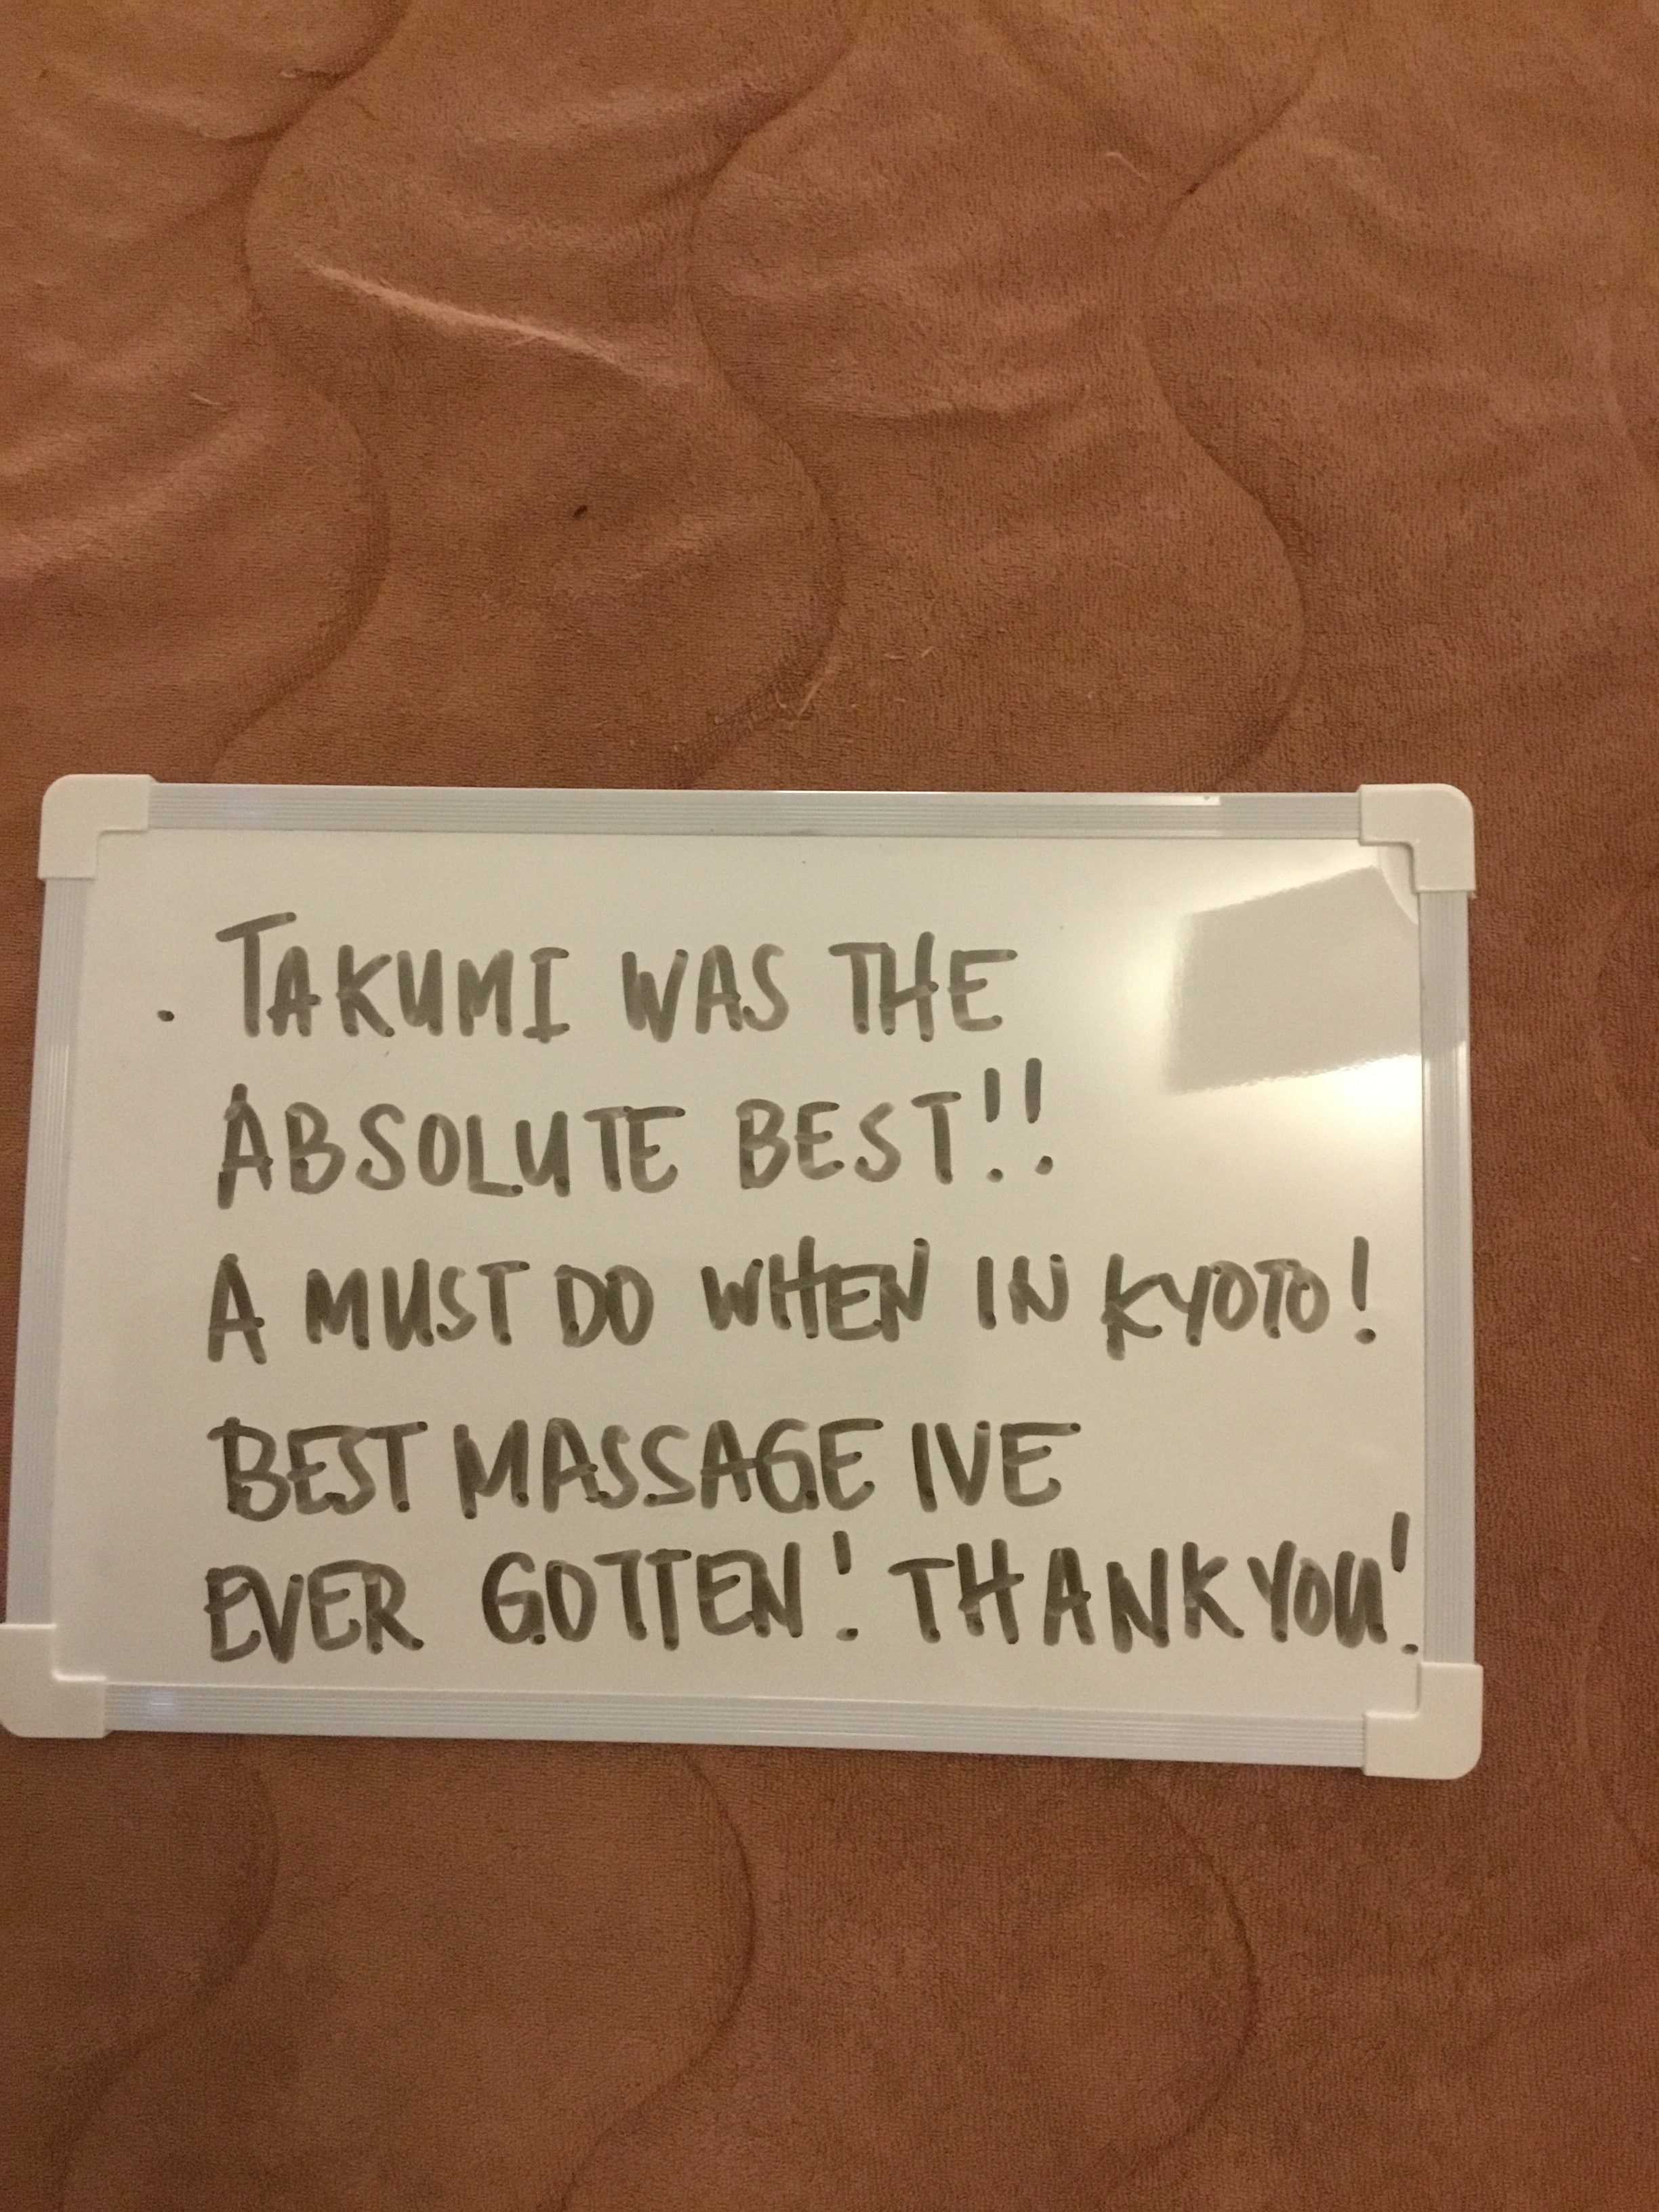 . TAKUMI WAS THE
ABSOLUTE BEST!!
A MUST DO WHEN IN KYOTO!
BEST MASSAGE IVE
EVER GOTTEN! THANK YOU!